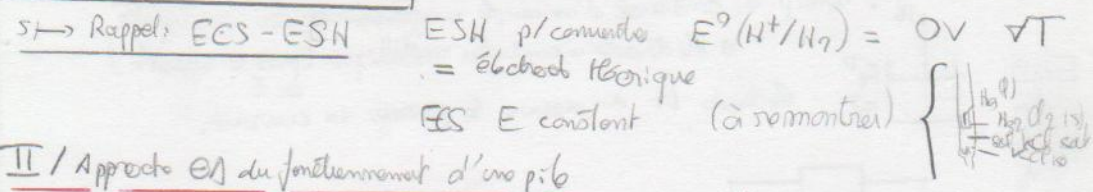 5 ↦ Rappel: ECS - ESH ESH p/ convention E°(H⁺/H₂) = 0V ∀T
= électrode théorique
ECS E constant (à remontrer) { Hg(l) Hg₂Cl₂(s) KCl sat KCl(s)
II / Approche du fonctionnement d'une pile